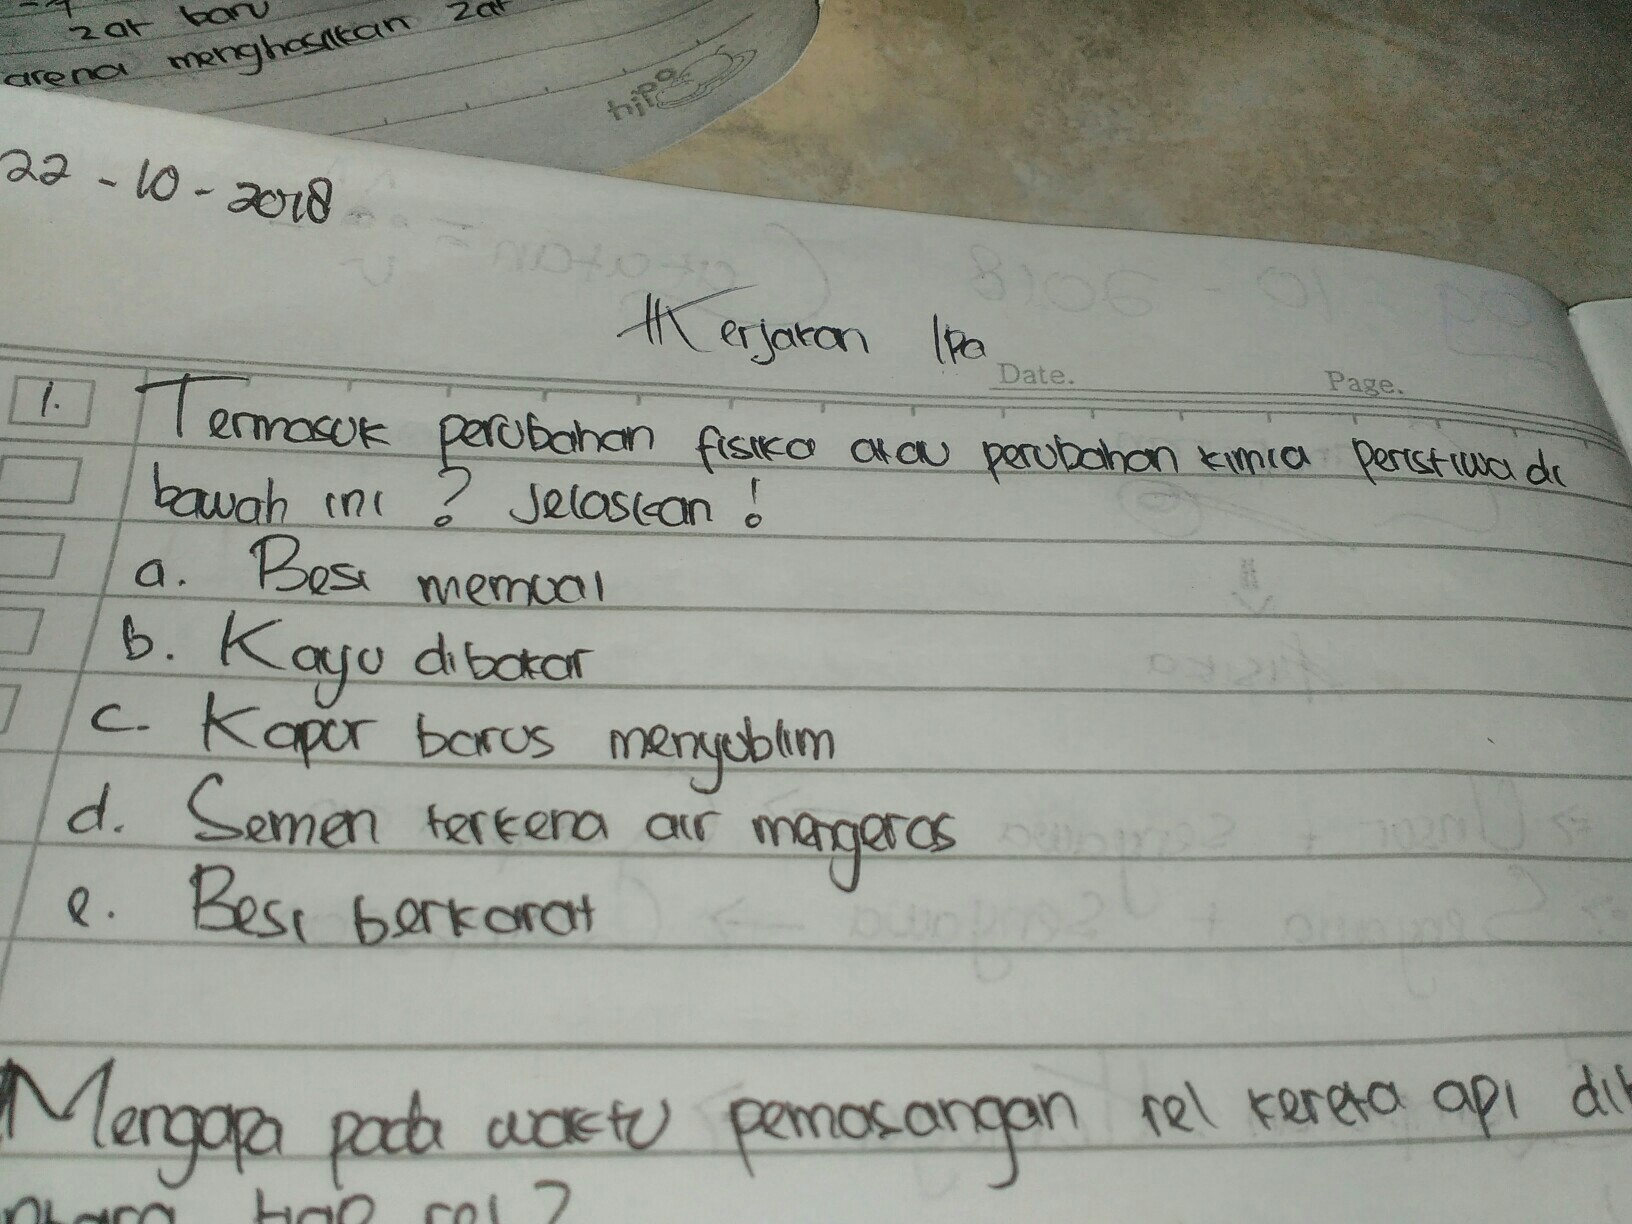 zat baru
arena menghasilkan zat
hipo
22 - 10 - 2018
Kerjakan Ipa
Date. Page.
1. Termasuk perubahan fisika atau perubahan kimia peristiwa di
bawah ini ? Jelaskan !
a. Besi memuai
b. Kayu dibakar
c. Kapur barus menyublim
d. Semen terkena air mengeras
e. Besi berkarat
Mengapa pada waktu pemasangan rel kereta api
antara tiap rel ?